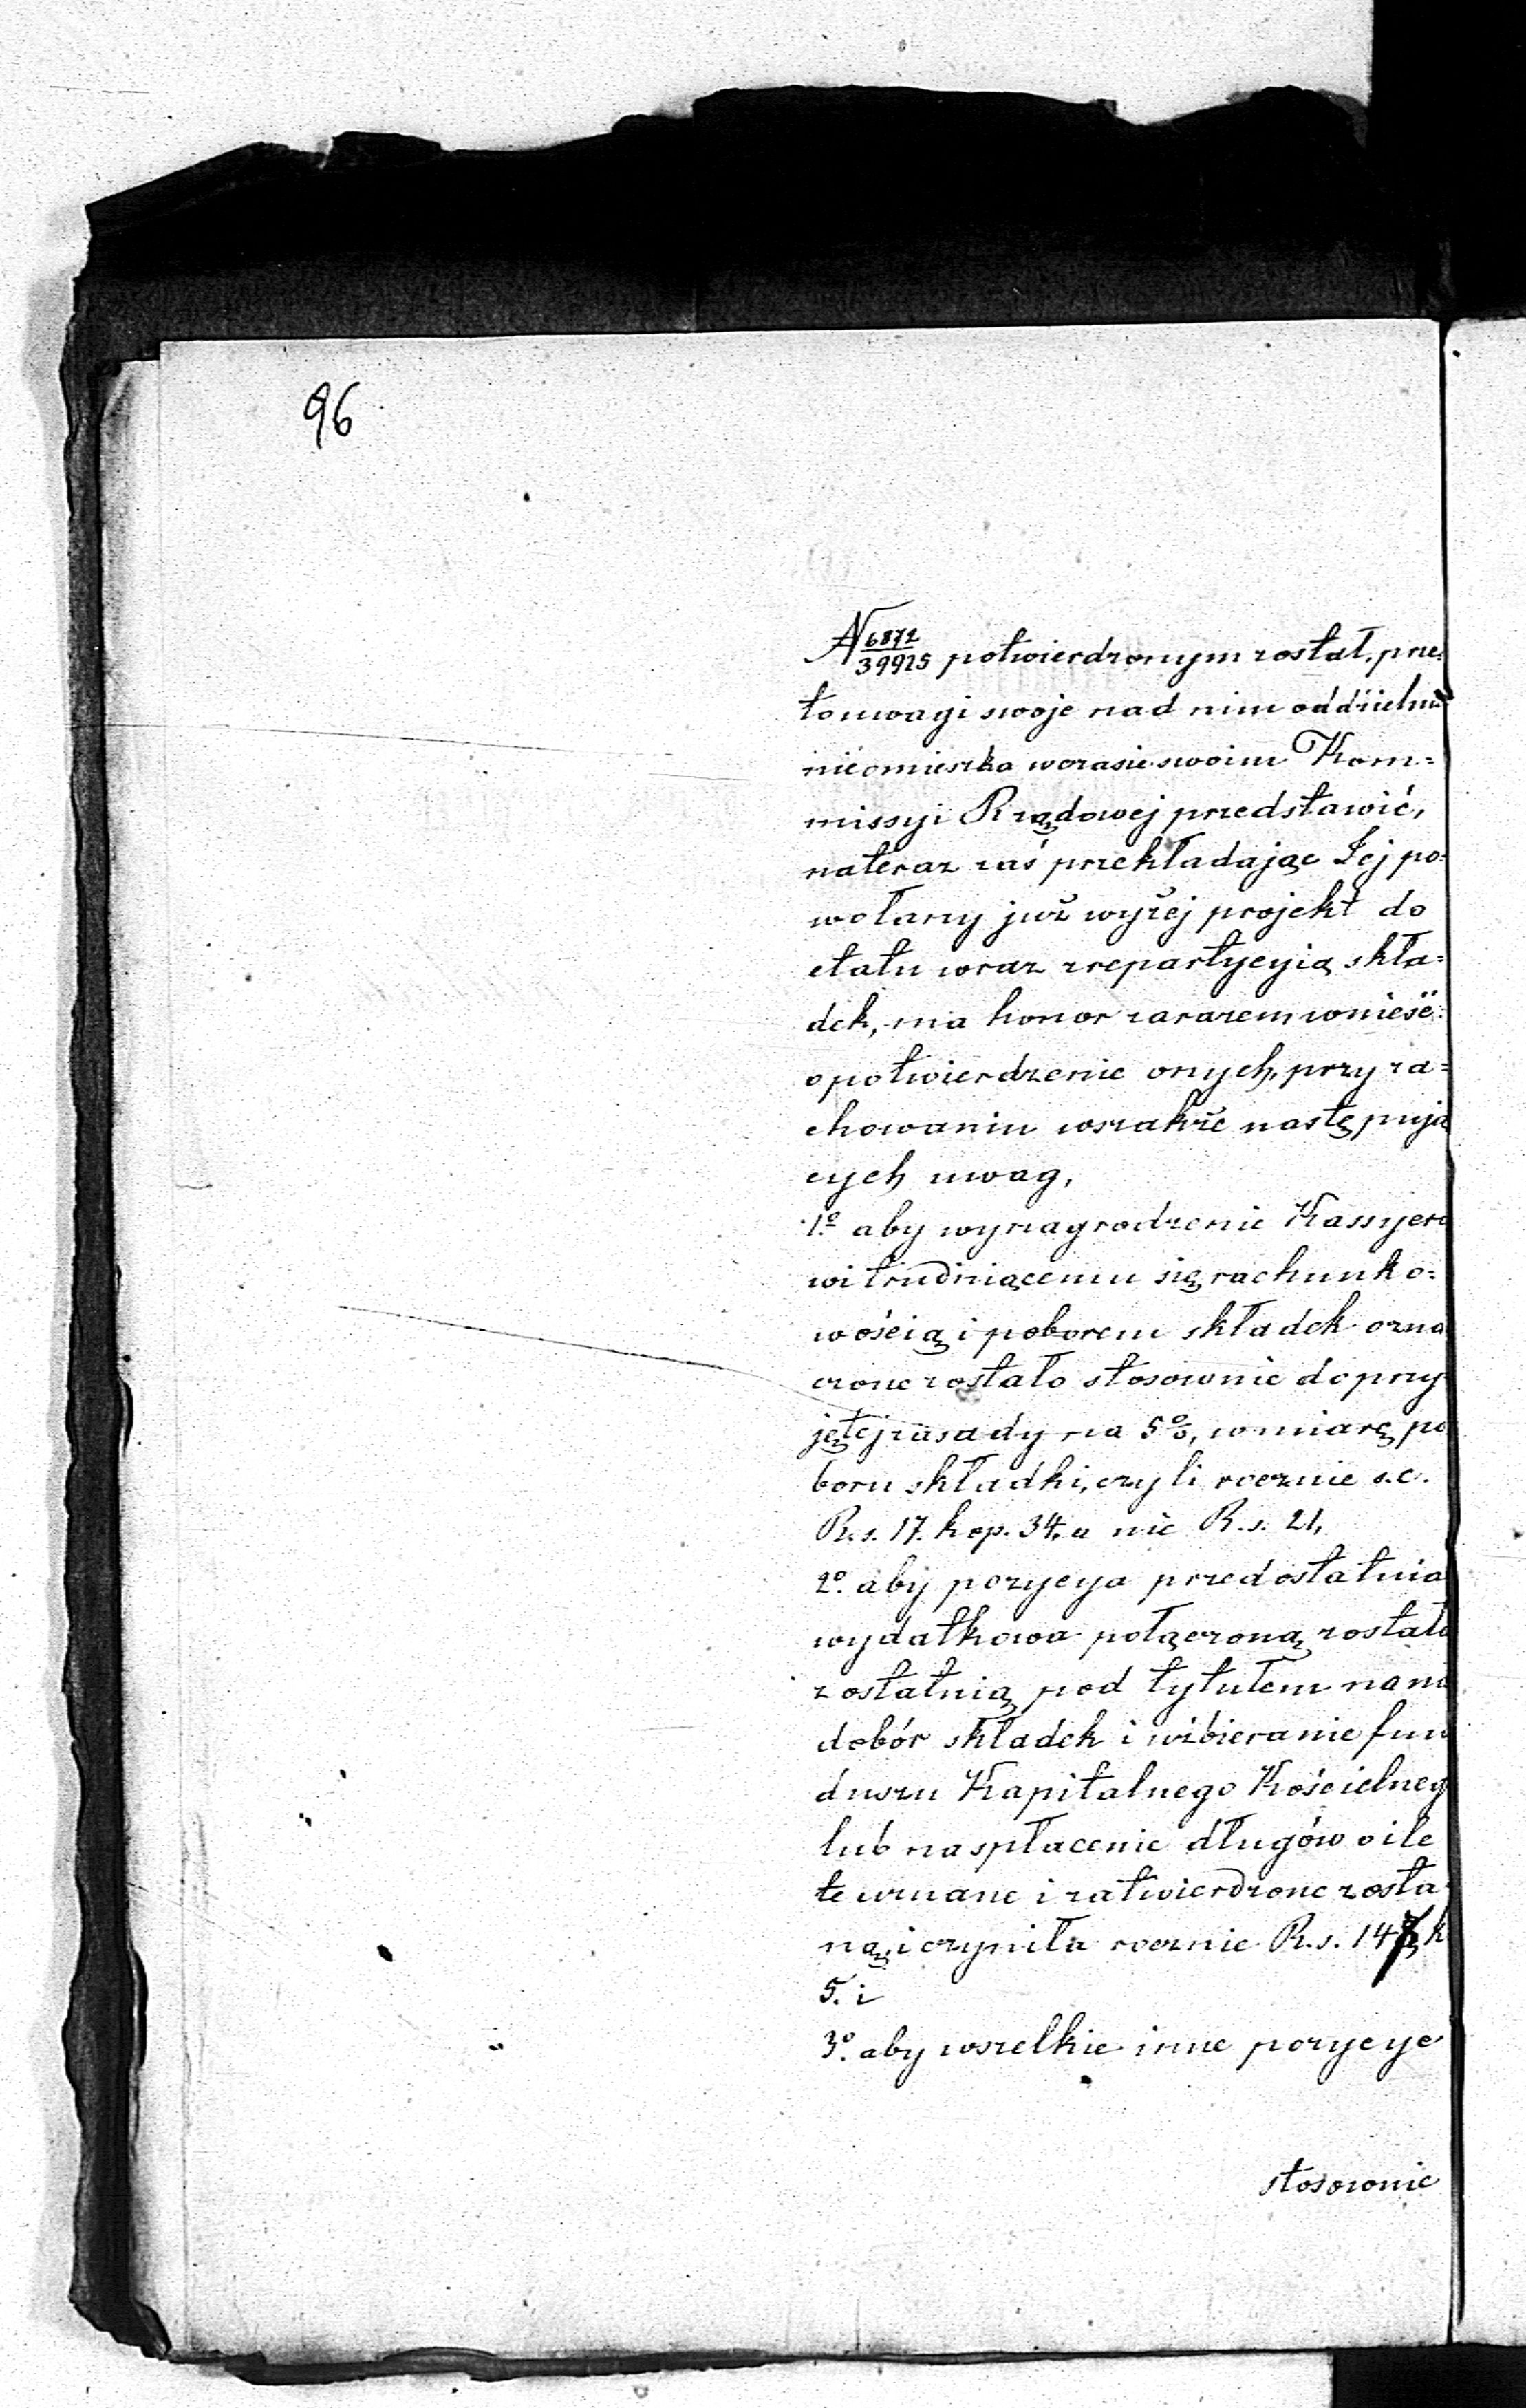 96
N 6872/39925 potwierdzonym został, prze
to uwagi swoje nad nim oddzielnie
nieomieszka w czasie swoim Kom=
missyi Rządowej przedstawić,
nateraz zaś przekładając Jej po=
wołany już wyżej projekt do
etatu wraz z repartycyią skła=
dek, ma honor zarazem wnieść
o potwierdzenie onych, przy za=
chowaniu wszakże następują
cych uwag,
1º aby wynagrodzenie Kassyero
wi trudniącemu się rachunko=
wością i poborem składek ozna
czone zostało stosownie do przy
jętej zasady na 5%, w miarę po
boru składki, czyli rocznie s.c.
R.s. 17. kop. 34, a nie R.s. 21,
2º. aby pozycya przedostatnia
wydatkowa połączoną została
z ostatnią pod tytułem na nie
dobór składek i uzbieranie fun
duszu Kapitalnego Kościelneg
lub na spłacenie długów o ile
te uznane i zatwierdzone zosta
ną, i czyniła rocznie R.s. 147 k
5. i
3º. aby wszelkie inne pozycye
stosownie